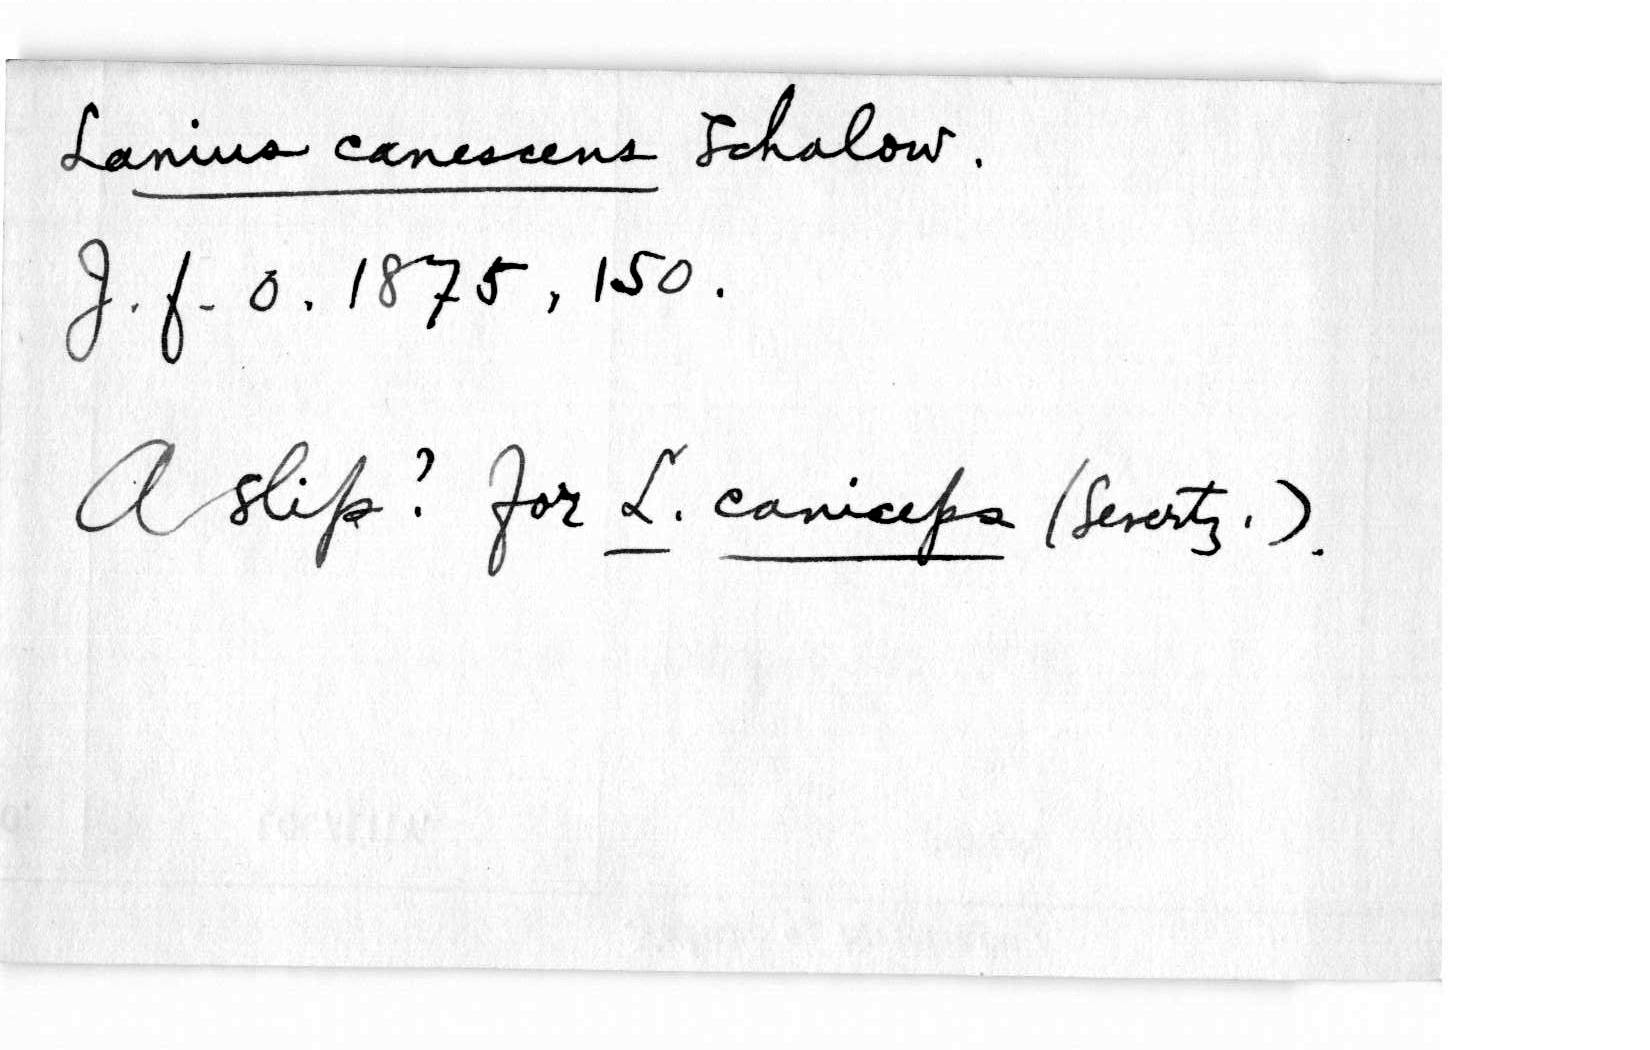 Lanius canescens Schalow.
J. f. O. 1875, 150.
A slip? for L. caniceps (Severtz.).